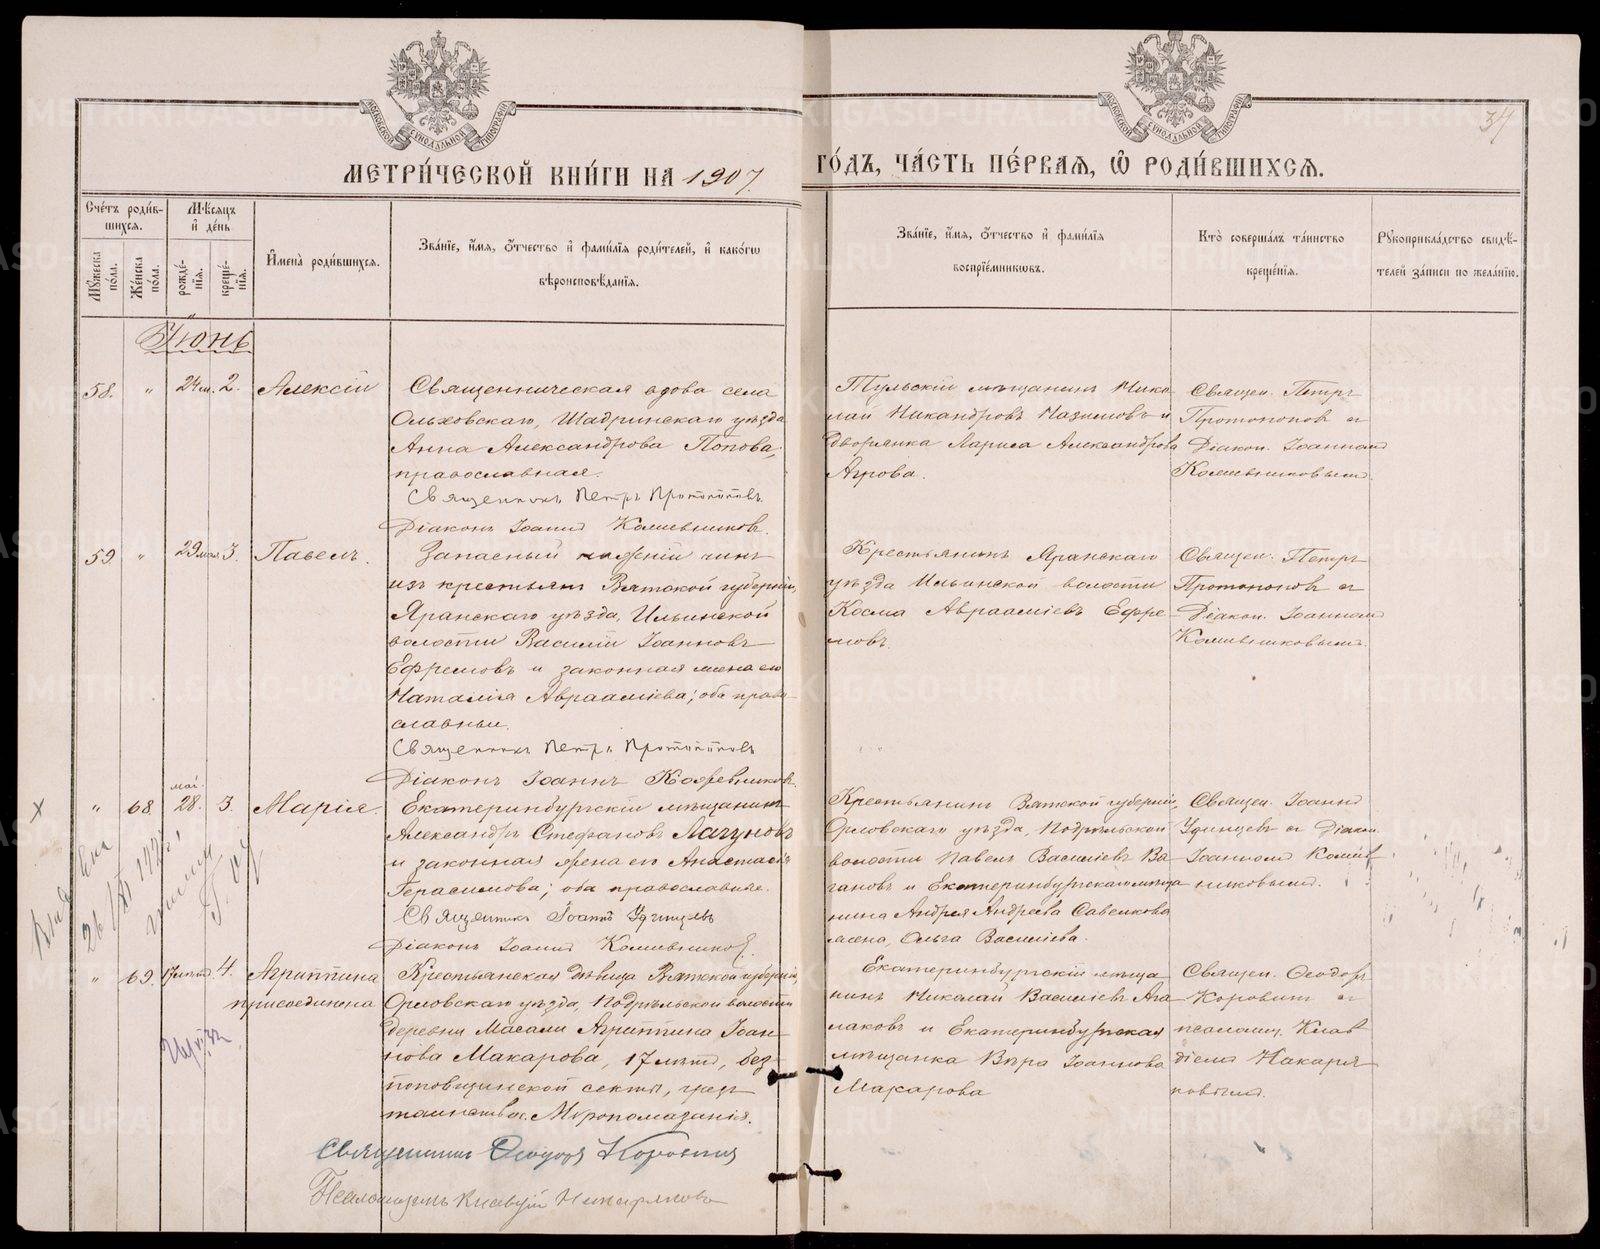 МЕТРИ́ЧЕСКОЙ КНИ́ГИ НА 1907
ГО́ДЪ, ЧА́СТЬ ПЕ́РВАѦ, Ѽ РОДИ́ВШИХСѦ.
34
Сче́тъ роди́в-
шихсѧ.
Мꙋ́жеска
по́ла.
Же́нска
по́ла.
Мѣ́сѧцъ
и҆ де́нь
рожде́-
нїѧ.
креще́-
нїѧ.
И҆мена̀ роди́вшихсѧ.
Зва́нїе, и҆́мѧ, ѻ҆́тчество и҆ фами́лїѧ роди́телей, и҆ како́гѡ
вѣроисповѣ́данїѧ.
Зва́нїе, и҆́мѧ, ѻ҆́тчество и҆ фами́лїѧ
воспрїе́мникѡвъ.
Кто̀ соверша́лъ та́инство
креще́нїѧ.
Рꙋкоприкла́дство свидѣ́-
телей за́писи по жела́нїю.
Іюнь
58. " 24 м. 2. Алексій
Священническая вдова села
Ольховскаго, Шадринскаго уѣзда
Анна Александрова Попова,
православная.
Священникъ Петръ Протопоповъ.
Діаконъ Іоаннъ
Тульскій мѣщанинъ Нико-
лай Никандровъ Назимовъ и
дворянка Лариса Александрова
Агрова.
Священ. Петръ
Протопопов съ
Діакон. Іоанномъ
59. " 29 мая 3. Павелъ.
Запасный чинъ
изъ крестьянъ Вятской губерніи,
Яранскаго уѣзда, Ильинской
волости Василій Іоанновъ
Ефремовъ и законная жена его
Наталія Авраамiева; оба право-
славные.
Священникъ Петръ Протопоповъ
Діаконъ Іоаннъ
Крестьянинъ Яранскаго
уѣзда Ильинской волости
Косма Авраамiевъ Ефре-
мовъ.
Священ. Петръ
Протопопов съ
Діакон. Іоанномъ
" 68. май 28. 3. Марія.
Екатеринбургскій мѣщанинъ
Александръ Стефановъ Лагуновъ
и законная жена его Анастасія
Герасимова; оба православные.
Священникъ Іоаннъ Удинцевъ
Діаконъ Іоаннъ
Крестьянинъ Вятской губерніи,
Орловскаго уѣзда, Подрѣльской
волости Павелъ Василіевъ Ва-
гановъ и Екатеринбургскаго мѣща-
нина Андрея Андреева Савенкова
жена, Ольга Василіева.
Священ. Іоаннъ
Удинцевъ съ Діакон.
Іоанномъ
" 69. 17 лѣтъ. 4. Агриппина
присоединена
Крестьянская дѣвица Вятской губерніи,
Орловскаго уѣзда, Подрѣльской волости
деревни Масали Агриппина Іоан-
нова Макарова, 17 лѣтъ, без-
поповщинской секты, чрезъ
таинство Мѵропомазанія.
Священникъ Ѳеодоръ Коровинъ
Псаломщикъ
Екатеринбургскій мѣща-
нинъ Николай Василіевъ Ага-
лаковъ и Екатеринбургская
мѣщанка Вѣра Іоаннова
Макарова
Священ. Ѳеодоръ
Коровинъ съ
псаломщ. Клав-
діемъ